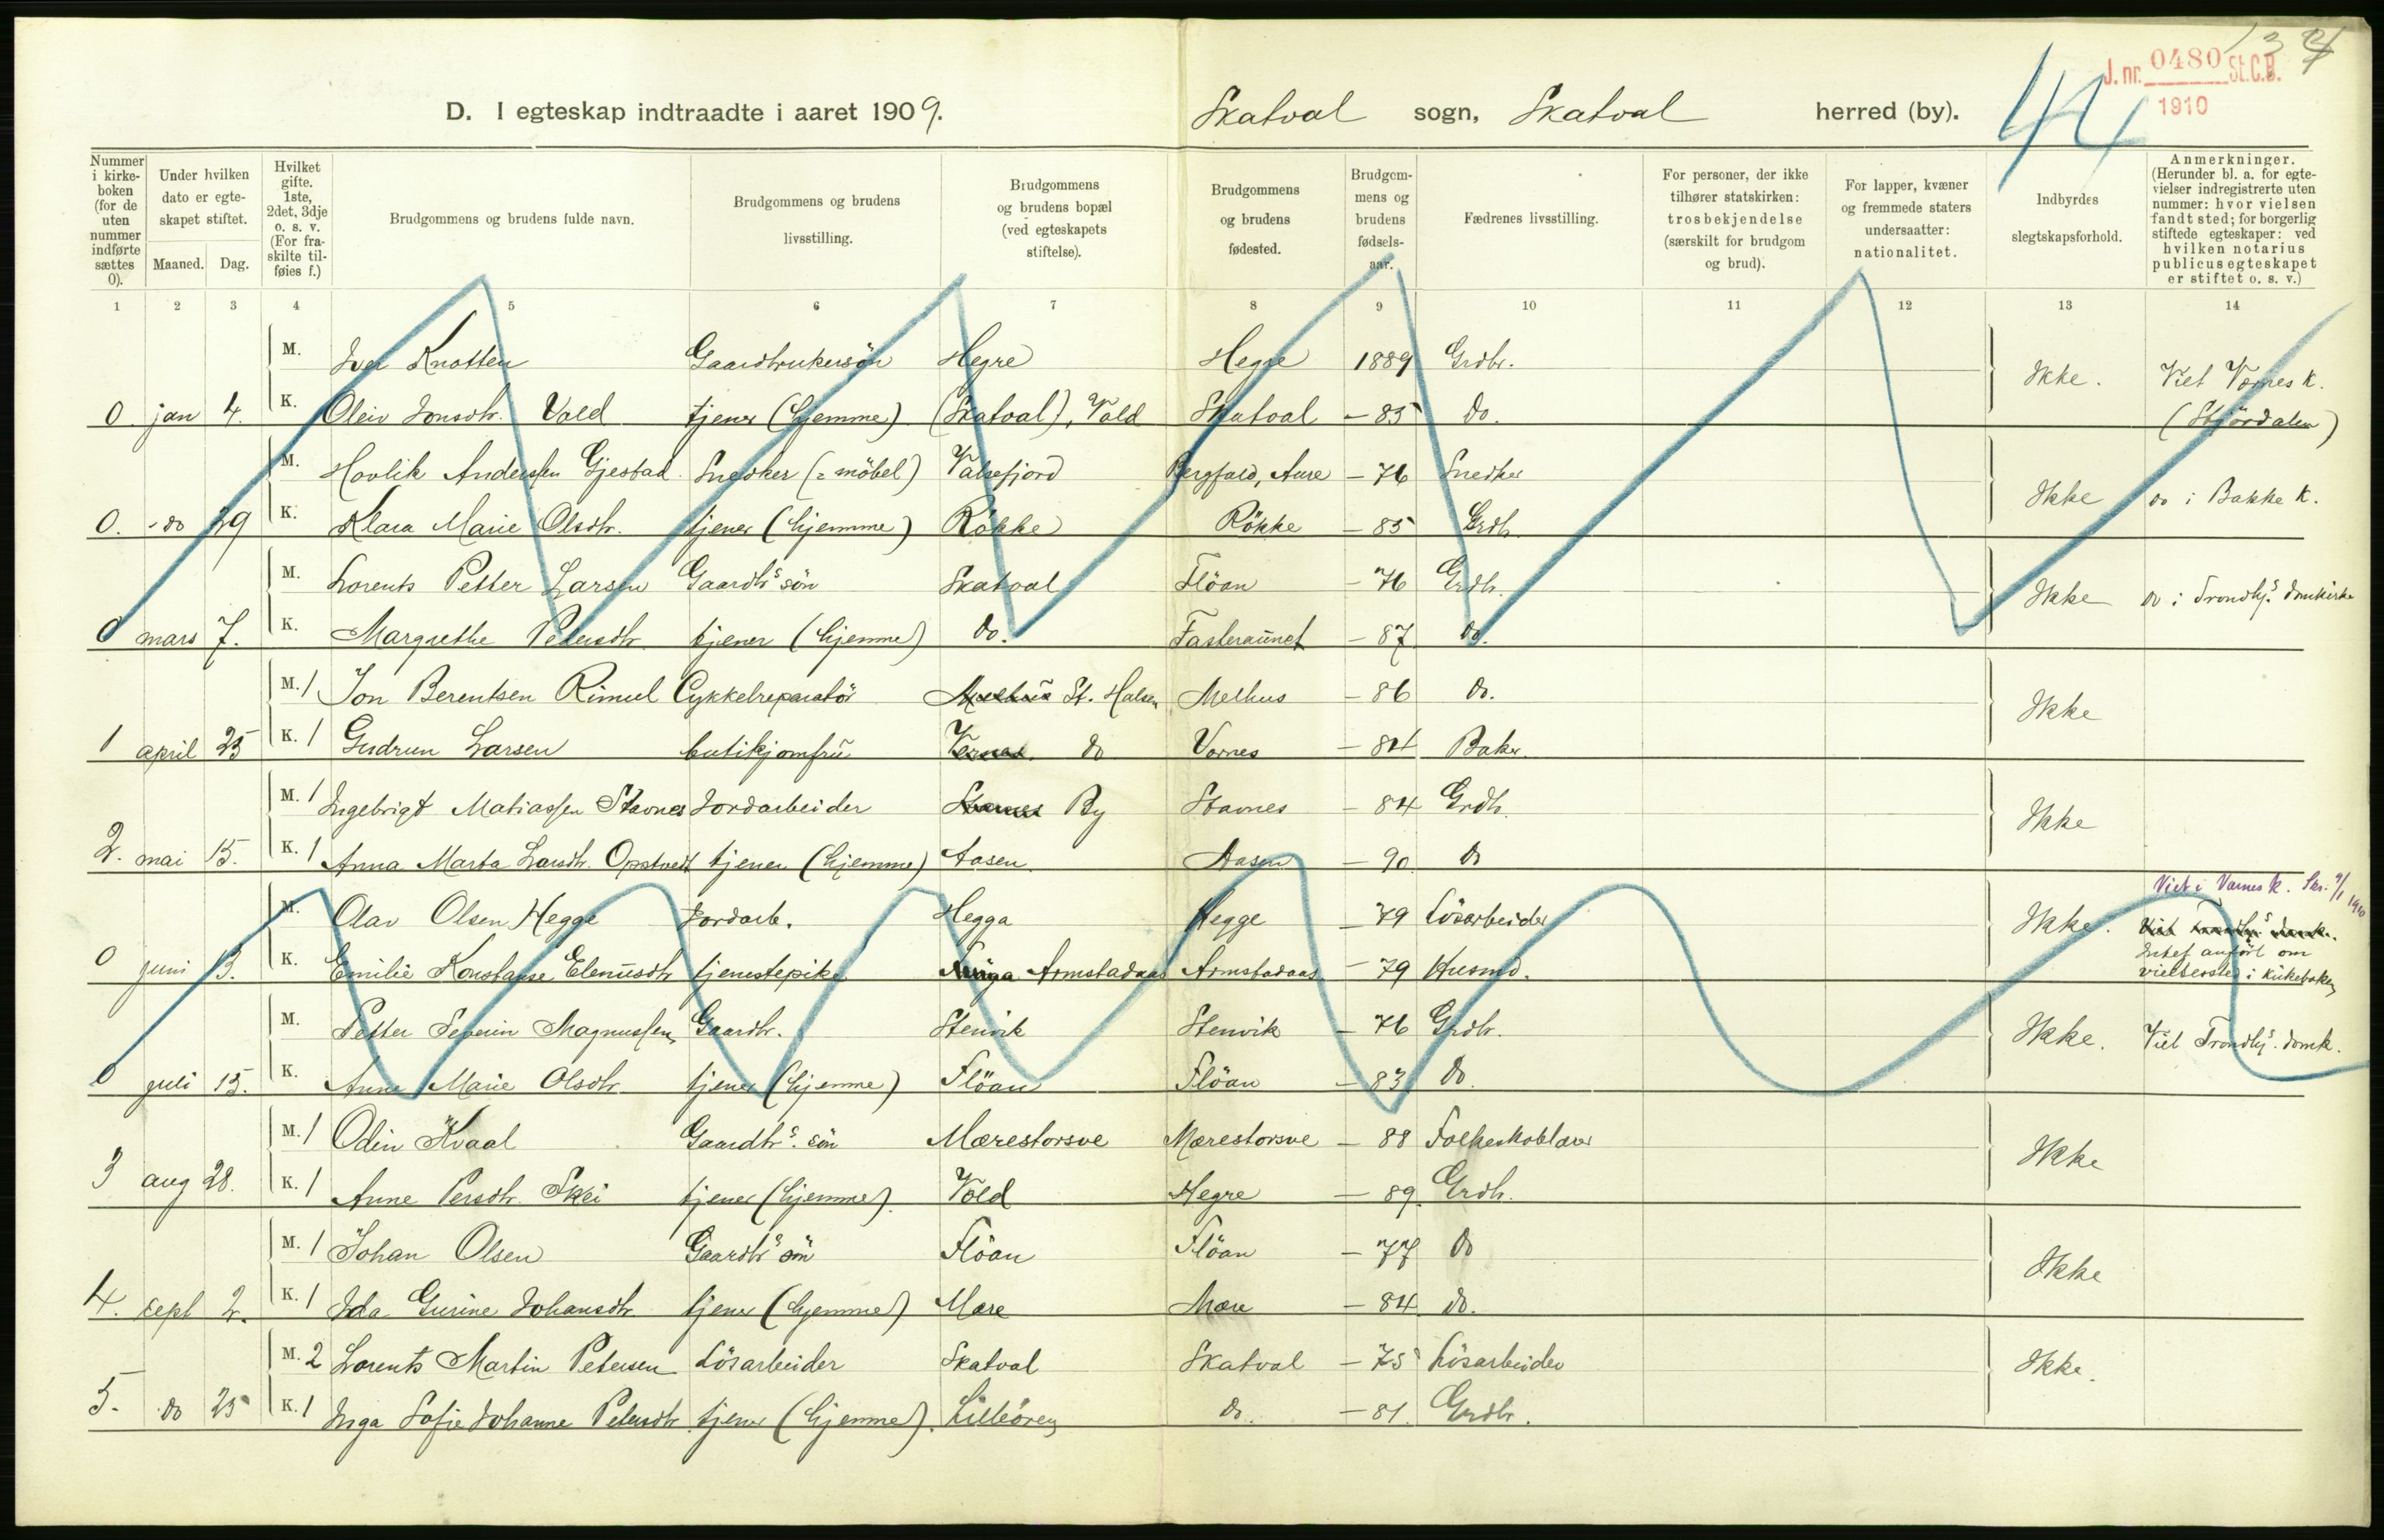 13
J. nr. 0480 St.C.B.
1910
44
D. I egteskap indtraadte i aaret 1909. Skatval sogn, Skatval herred (by).
Nummer i kirkeboken (for de uten nummer indførte sættes 0).
Under hvilken dato er egteskapet stiftet.
Maaned. Dag.
Hvilket gifte. 1ste, 2det, 3dje o. s. v. (For fraskilte tilføies f.)
Brudgommens og brudens fulde navn.
Brudgommens og brudens livsstilling.
Brudgommens og brudens bopæl (ved egteskapets stiftelse).
Brudgommens og brudens fødested.
Brudgommens og brudens fødselsaar.
Fædrenes livsstilling.
For personer, der ikke tilhører statskirken: trosbekjendelse (særskilt for brudgom og brud).
For lapper, kvæner og fremmede staters undersaatter: nationalitet.
Indbyrdes slegtskapsforhold.
Anmerkninger. (Herunder bl. a. for egtevielser indregistrerte uten nummer: hvor vielsen fandt sted; for borgerlig stiftede egteskaper: ved hvilken notarius publicus egteskapet er stiftet o. s. v.)
1 2 3 4 5 6 7 8 9 10 11 12 13 14
M. Iver Knotten Gaardbrukersön Hegre Hegre 1889 Grdbr. Ikke. Viet Værnes k.
0 jan 4. K. Oleiv Jonsdtr. Vold tjener (hjemme) (Skatval), Vold Skatval - 85 do. (Stjördalen)
M. Hovlik Anderssen Gjestad Snedker (= möbel) Valsefjord Bergfald, Aure - 76 Snedker Ikke do i Bakke k.
0. do 29 K. Klara Marie Olsdtr. tjener (hjemme) Røkke Røkke - 85 Grdb.
M. Lorents Petter Larsen Gaardbrs sön Skatval Flöan - 76 Grdb. Ikke do i Trondhj.s domkirke
0 mars 7. K. Margrethe Petersdtr. tjener (hjemme) do. Fasteraunet - 87 do.
M. 1 Jon Berentsen Rimul Cykkelreparatör Melhus St. Halsen Melhus - 86 do. Ikke
1 april 25 K. 1 Gudrun Larsen butikjomfru Værnes. do Værnes - 84 Baker.
M. 1 Ingebrigt Matiassen Stavnes Jordarbeider Stavnes By Stavnes - 84 Grdb. Ikke
2. mai 15. K. 1 Anna Marta Larsdtr. Opstvedt tjener (hjemme) Aasen. Aasen - 90 do
Viet i Værnes k. Skr. 4/1 1910
M. Olav Olsen Hegge Jordarb. Hegga Hegge - 79 Lösarbeider Ikke. Viet Trondhj.s domk.
0 juni 13. K. Emilie Konstanse Elenusdtr tjenestepike Armstadaas Armstadaas - 79 Husmd. Intet anført om vielsessted i kirkeboken
M. Petter Severin Magnussen Gaardbr. Stenvik Stenvik - 76 Grdbr. Ikke. Viet Trondhj.s domk.
0 juli 15. K. Anne Marie Olsdtr. tjener (hjemme) Flöan Flöan - 83 do.
M. 1 Odin Kvaal Gaardbrs. sön Mærestorsve Mærestorsve - 88 Folkeskolelærer Ikke
3 aug 28. K. 1 Anne Persdtr. Skei tjener (hjemme) Vold Hegre - 89. Grdb.
M. 1 Johan Olsen Gaardbrs sön Flöan Flöan - 77 do Ikke
4. sept 2. K. 1 Ida Gurine Johansdtr tjener (hjemme) Mære Mære - 84. do.
M. 2 Lorents Martin Petersen Lösarbeider Skatval Skatval - 75 Lösarbeider Ikke.
5. do 25 K. 1 Inga Sofie Johanne Petersdtr. tjener (hjemme). Lilleören do. - 81. Grdbr.